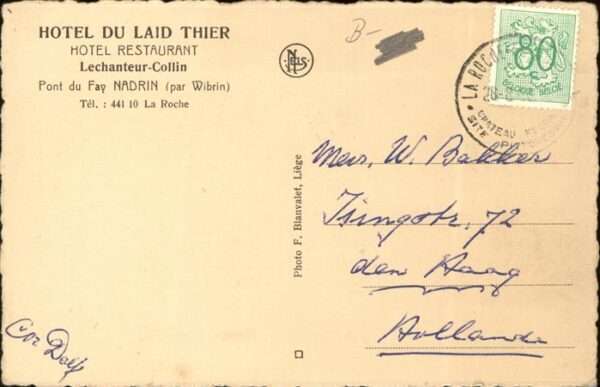 HOTEL DU LAID THIER
HOTEL RESTAURANT
Lechanteur-Collin
Pont du Fay NADRIN (par Wibrin)
Tél. : 441 10 La Roche
B-
NELS
80
BELGIQUE BELGIË
LA ROCHE
28-8
CHATEAU
SITE
Photo F. Blanvalet, Liège
W. Bakker
72
den Haag
Hollande
Cor